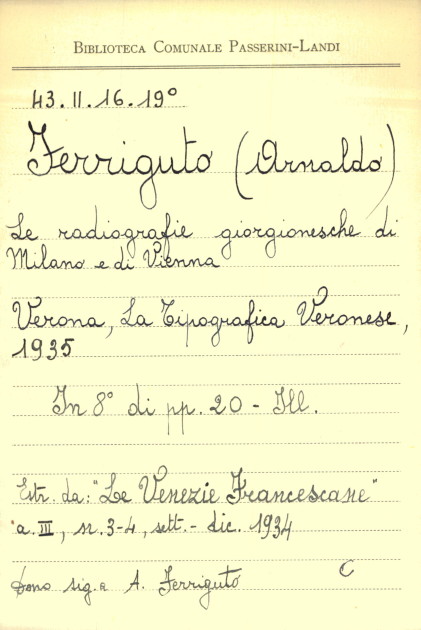 BIBLIOTECA COMUNALE PASSERINI-LANDI
43.II.16.19°
Ferriguto (Arnaldo)
Le radiografie giorgionesche di
Milano e di Vienna
Verona, La Tipografica Veronese,
1935
In 8° di pp. 20 - Ill.
Estr. da: "Le Venezie Francescane"
a. III, n. 3-4, sett. - dic. 1934
Dono sig. A. Ferriguto C